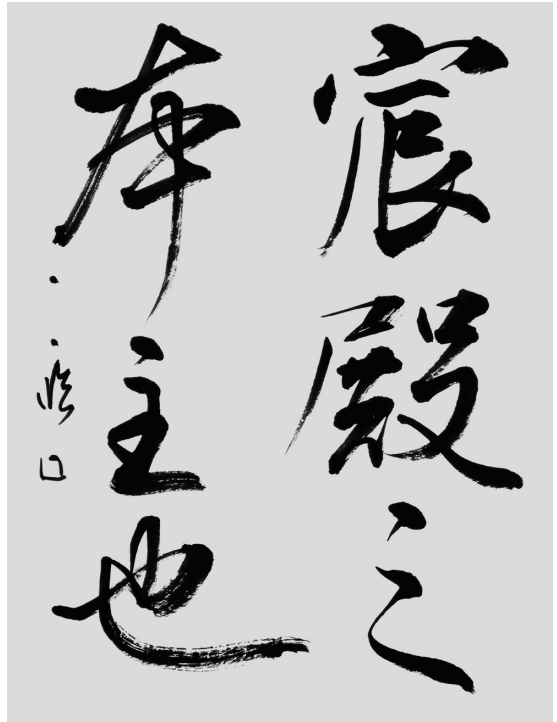 宸殿之
本主也